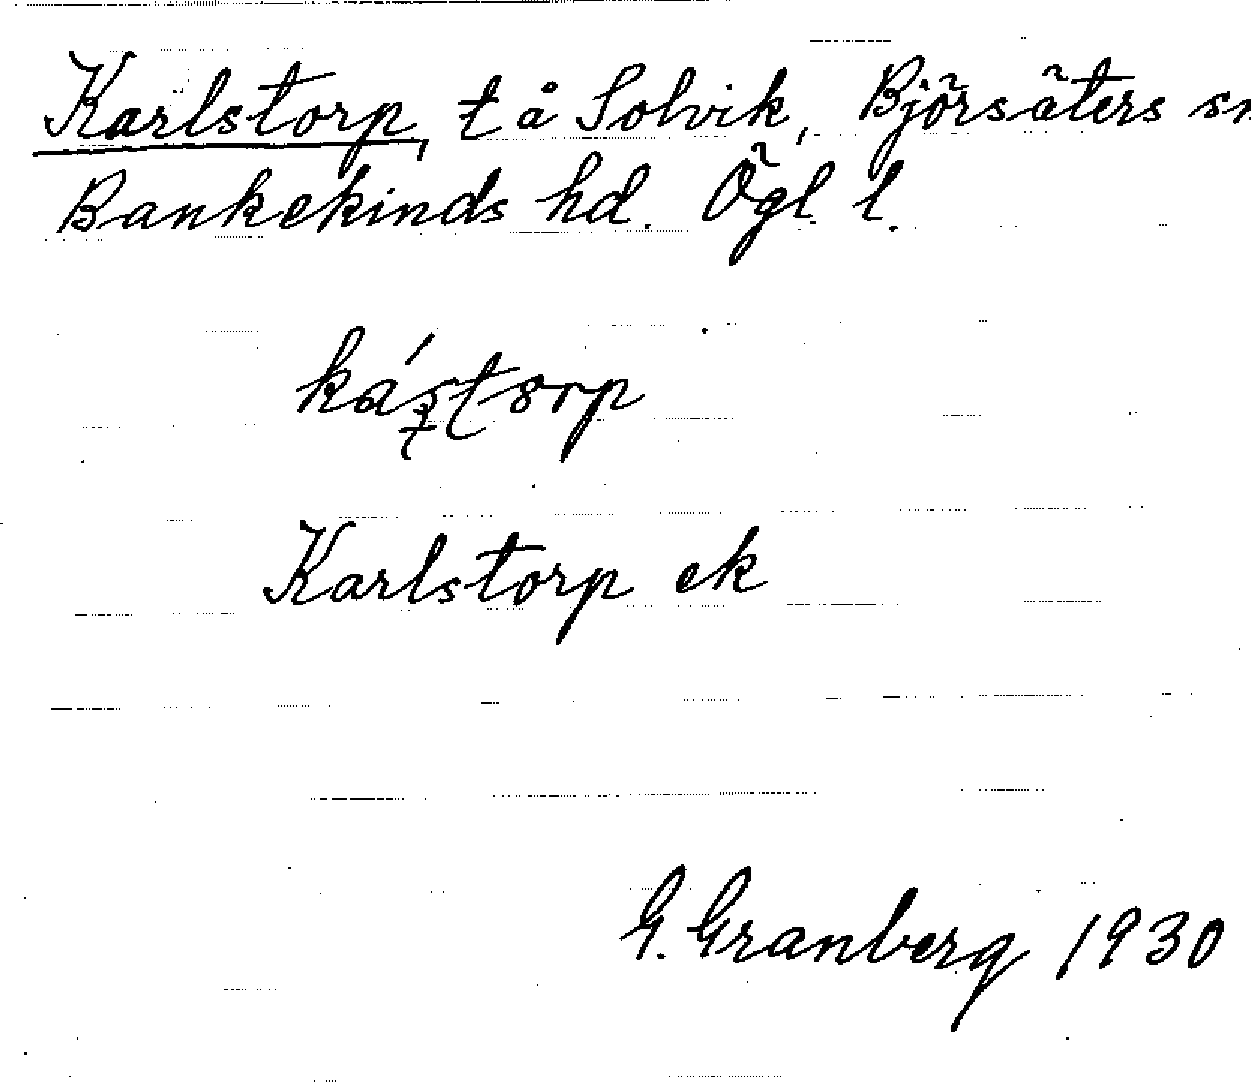 Karlstorp, t å Solvik, Björsäters sn
Bankekinds hd. Ögl l.
Karlstorp ek
G. Granberg 1930